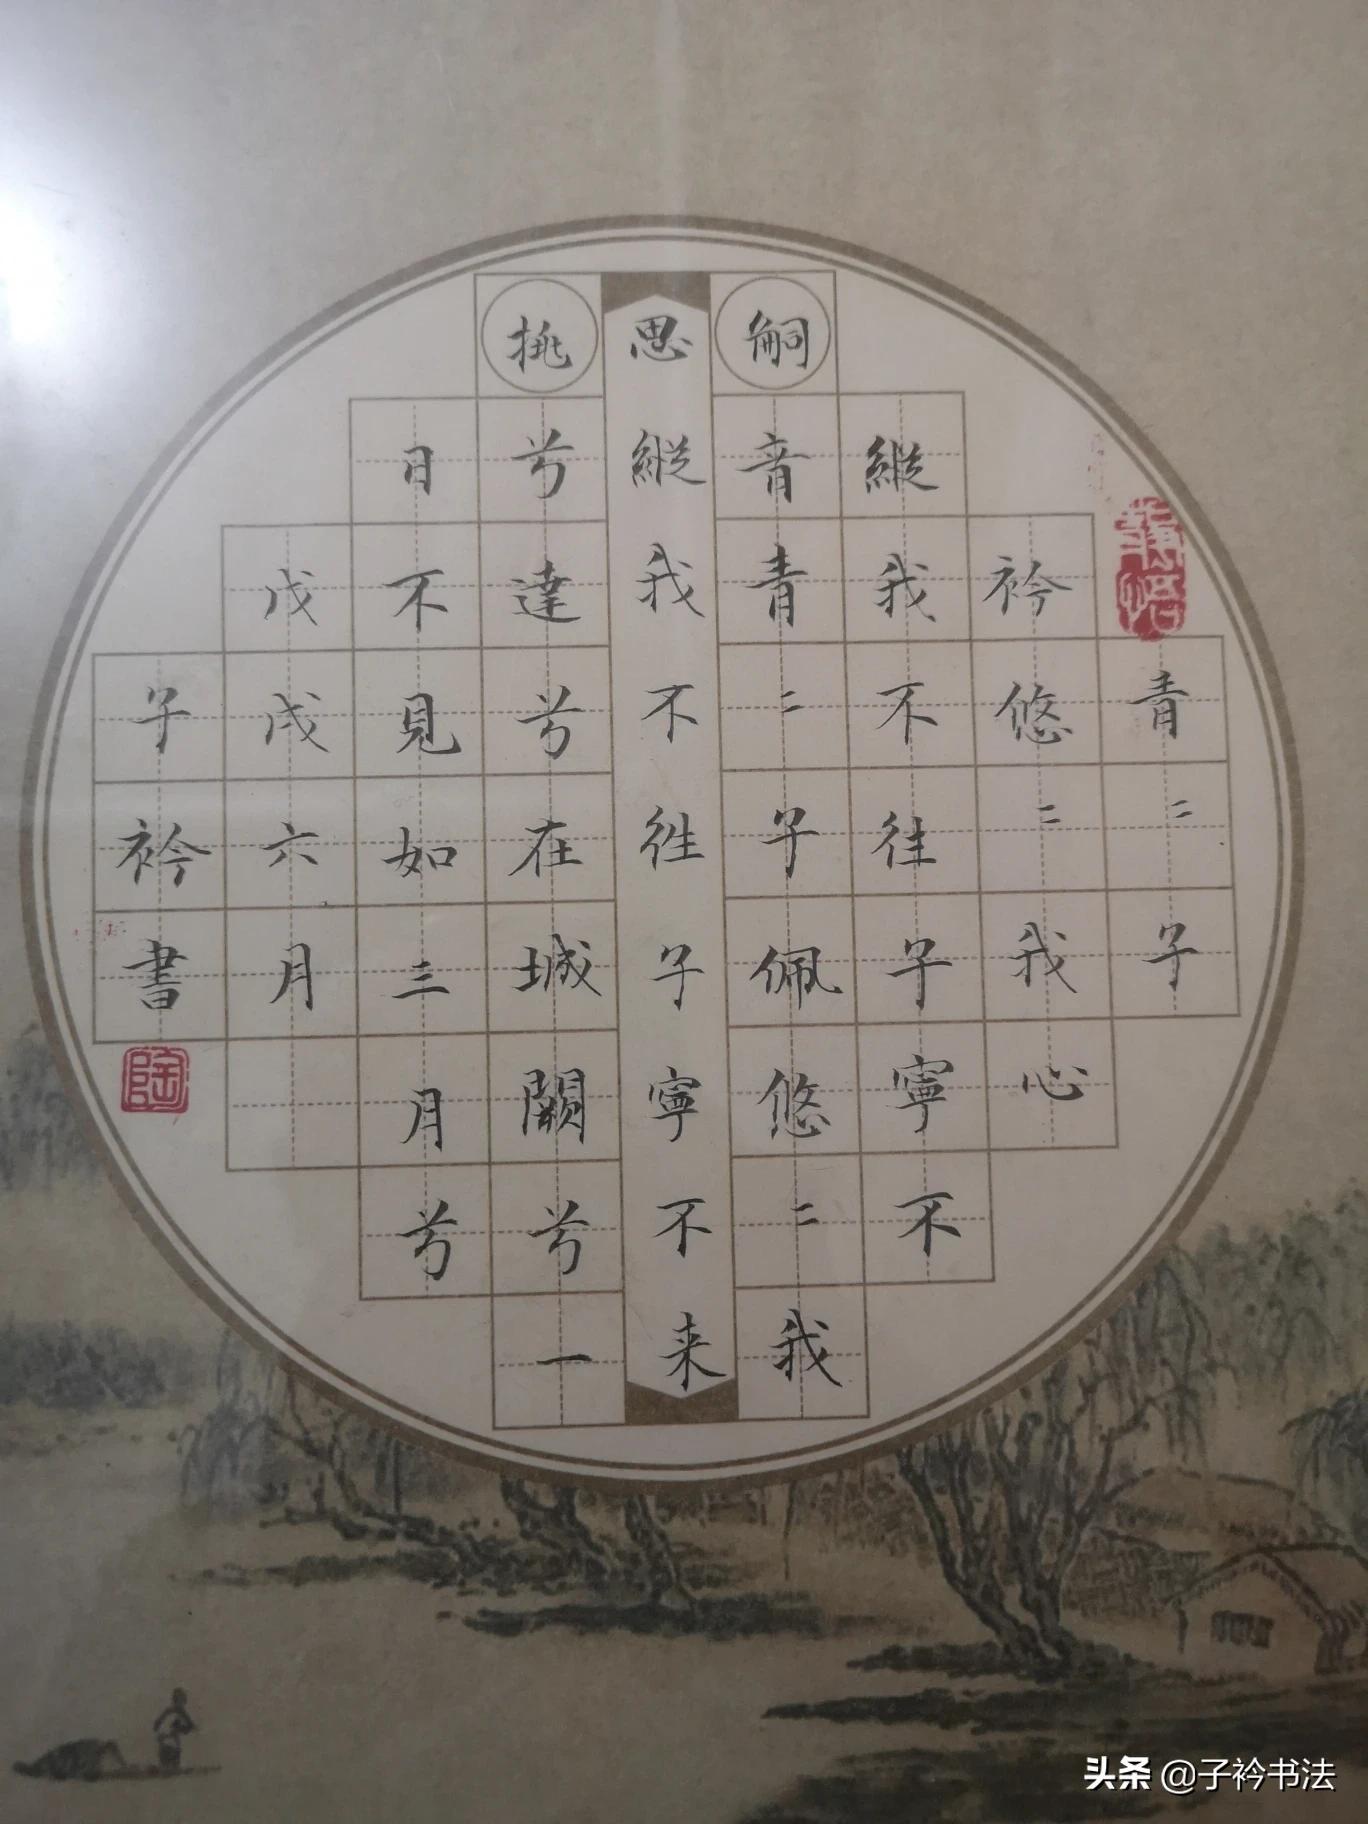 青〻子
衿悠〻我心
縱我不往子寧不
嗣音青〻子佩悠〻我
思縱我不往子寧不来
挑兮達兮在城闕兮一
日不見如三月兮
戊戌六月
子衿書
陶
头条 @子衿书法